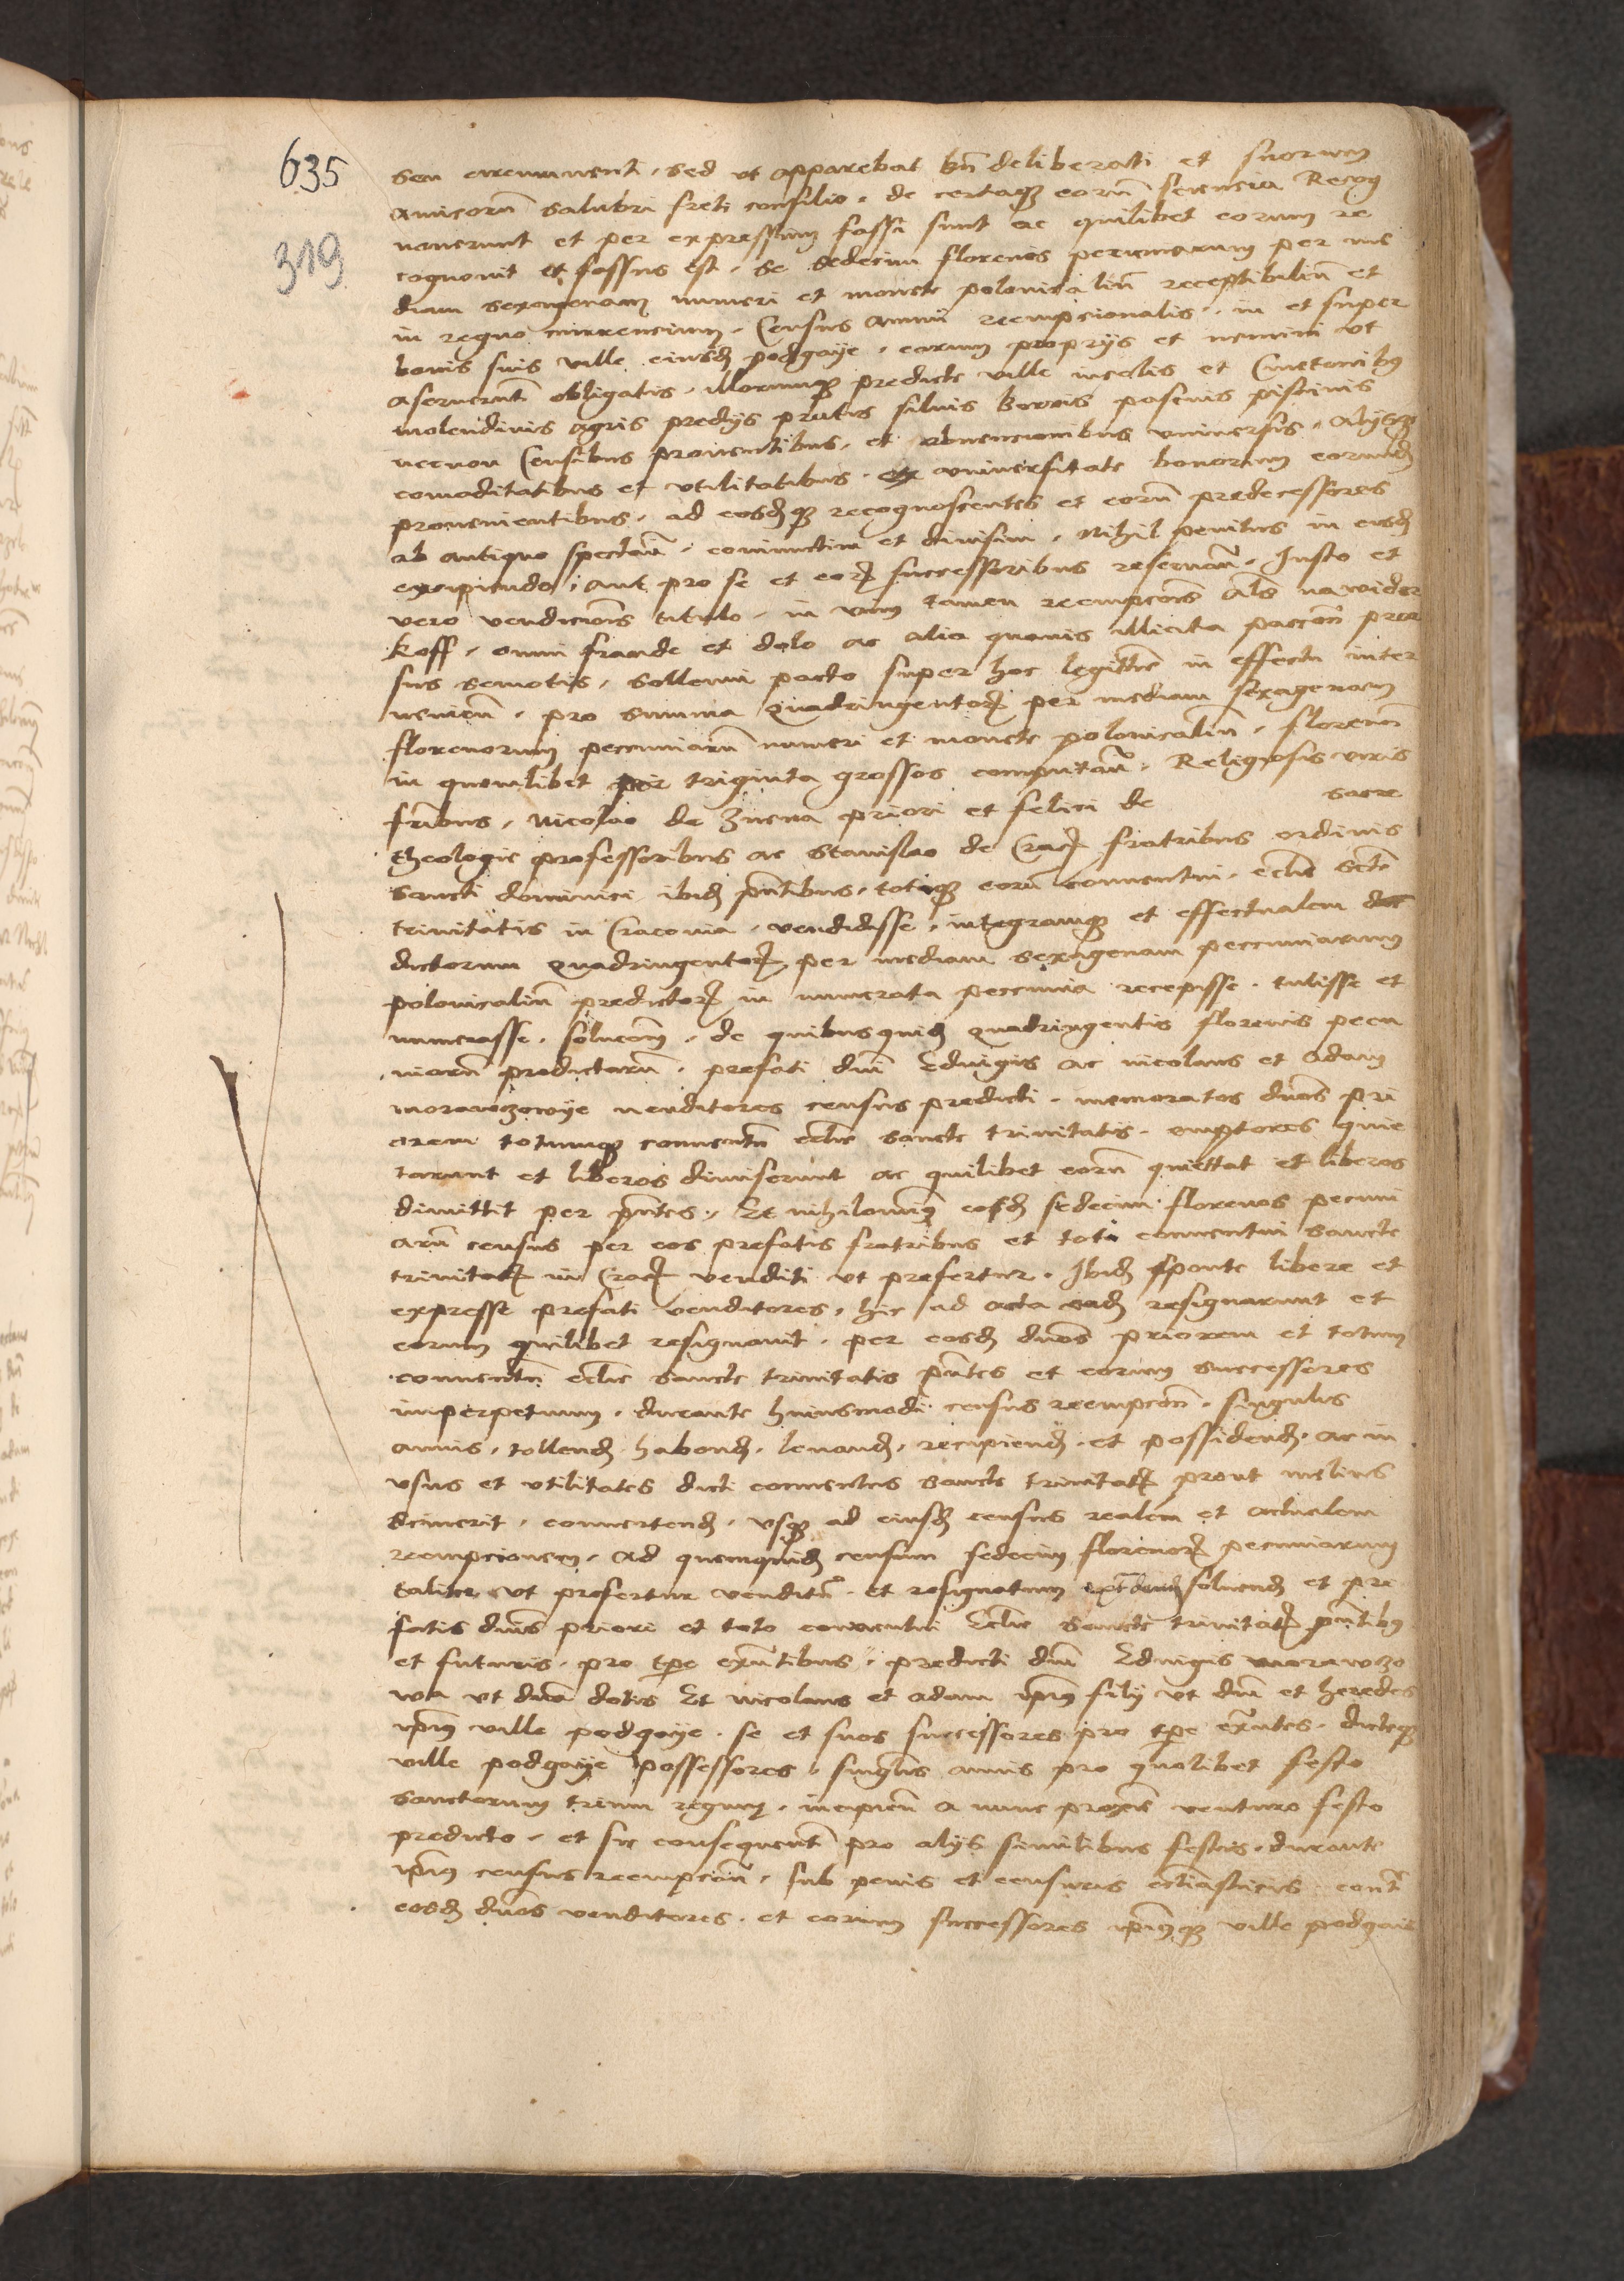 635
319
seu circumventi, sed ut apparebat bn̄ deliberati et suorum
amicorū salubri freti consilio, de certaqꝫ eorū sciencia Recog
noverunt et per expressum fassi sunt ac quilibet eorum re
cognovit et fassus est, se sedecim florenos pecuniarum per me
diam sexagenam numeri et monete polonicaliū receptibiliū et
in regno currencium, Census annui reempcionalis, in et super
bonis suis ville eiusdꝫ podgaye, eorum proprys et nemini ut
aseruerūt obligatis, illorumqꝫ predicte ville incolis et Cmetonibꝰ
molendinis agris predys pratis silvis borris pascuis piscinis
necnon Censibus proventibus, et obvencionibus universis, Alysqꝫ
comoditatibus et utilitatibus, ex universitate bonorum eorundꝫ
provenientibus, ad eosdꝫqꝫ recognoscentes et eorū predecessores
ab antiquo spectan̄, coniunctim et divisim, Nihil penitus in eisdꝫ
excipiendo, aut pro se et eorꝝ successoribus reservan̄, Justo et
vero vendicionis titulo, in vim tamen reempcōis als̄ na wider
koff, omni fraude et dolo ac alia quavis illicita paccōe pror
sus semotis, sollenni pacto super hoc legittīe in effectu inter
venien̄, pro summa Quadringentorꝝ per mediam sexagenam
florenorum pecuniarū numeri et monete polonicaliū, florenū
in quemlibet per triginta grossos computan̄, Religiosis viris
frībus, Nicolao de Znena priori et felici de sacre
theologie professoribus ac Stanislao de Cracꝫ fratribus ordinis
sancti dominici ibidꝫ pn̄tibus, totiqꝫ eorū conventui, ecclīe scte
trinitatis in Cracovia, vendidisse, integramqꝫ et effectualem
dictorum Quadringentorꝝ per mediam sexagenam pecuniarum
polonicaliū predictorꝝ in numerata pecunia recepisse, tulisse et
numerasse, solucōem, de quibusquidꝫ Quadringentis florenis pecu
niarū predictarū, prefati dn̄i Edvigis ac nicolaus et Adam
morawczowye venditores census predicti, memoratos dnōs pri
orem totumqꝫ conventū ecclīe sancte trinitatis, emptores quie
tarunt et liberos dimiserunt ac quilibet eorū quiettat et liberos
dimittit per pn̄tes, Et nihilominꝰ eosdꝫ sedecim florenos pecuni
arū census per eos prefatis fratribus et toti conventui sancte
trinitatꝭ in Cracꝫ venditi ut prefertur, Ibidꝫ sponte libere et
expresse prefati venditores, hic ad acta eadꝫ resignarunt et
eorum quilibet resignavit, per eosdꝫ dnōs priorem et totum
conventū ecclīe sancte trinitatis pn̄tes et eorum successores
imperpetuum, durante huiusmodi census reempcōn, singulis
annis, tollendꝫ habendꝫ, levandꝫ, recipiendꝫ, et possidendꝫ, ac in
usus et utilitates dicti conventus sancte trinitatꝭ prout melius
sciverit, convertendꝫ, usqꝫ ad eiusdꝫ census realem et actualem
reempcionem, Ad quemquidꝫ censum sedecim florenorꝝ pecuniarum
taliter ut prefertur venditū, et resignatum solvendꝫ et pre
fatis dnīs priori et toto conventui Ecclīe sancte trinitatꝭ pn̄tibꝰ
et futuris, pro tpe exn̄tibus, predicti dn̄i Edvigis morawczo
wa ut dnā dotis Et nicolaus et adam ipiꝰ fily ut dn̄i et heredes
ipiꝰ ville podgaye, se et suos successores pro tpe exn̄tes, dicteqꝫ
ville podgaye possessores, singulis annis pro quolibet festo
sanctorum trium regum, incipien̄ a nunc proxie venturo festo
predicto, et sic consequentē pro alys similibus festis, durante
ipiꝰ census reempcioñ, sub penis et censuris ecclīasticis contra
eosdꝫ dnōs venditores, et eorum successores ipiusqꝫ ville podgaie